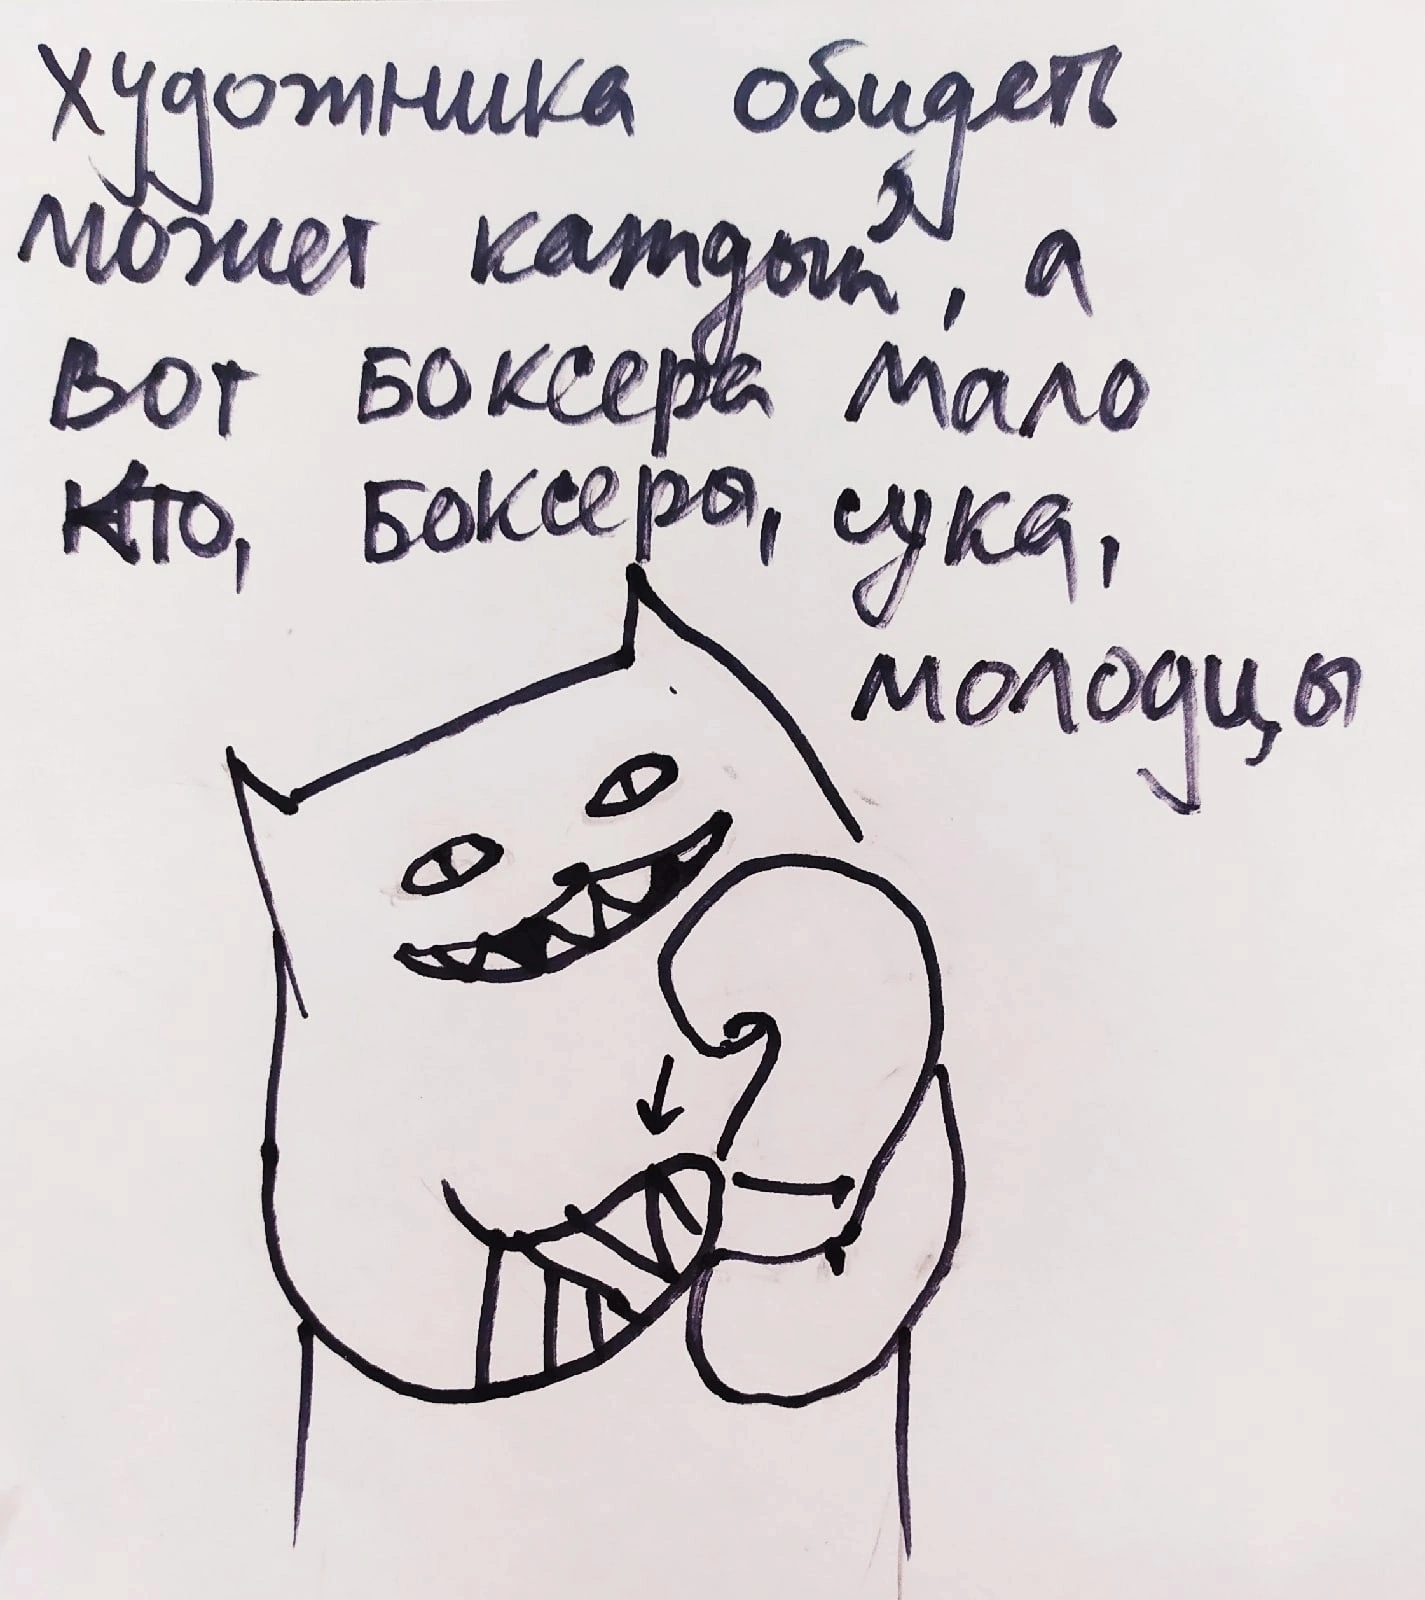 Художника обидеть
может каждый, а
вот боксера мало
кто, боксеры, сука,
молодцы